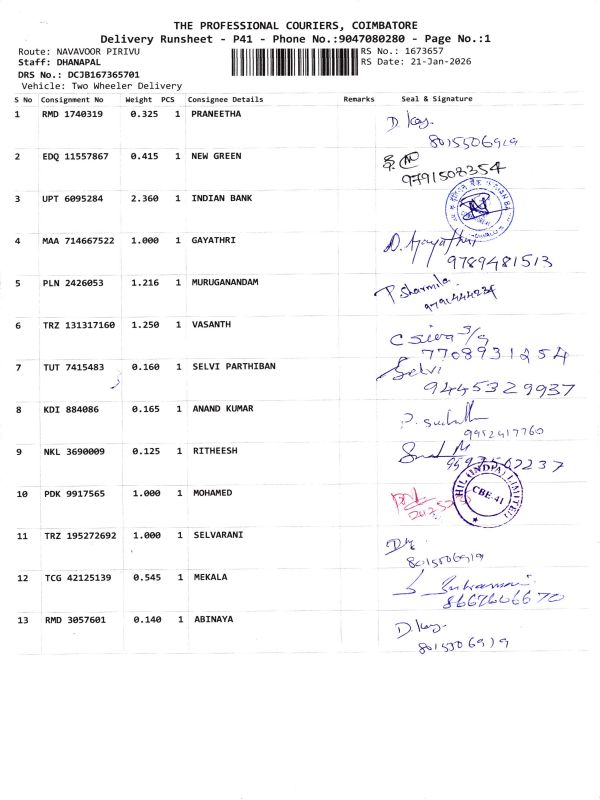 THE PROFESSIONAL COURIERS, COIMBATORE
Delivery Runsheet - P41 - Phone No.:9047080280 - Page No.:1
Route: NAVAVOOR PIRIVU RS No.: 1673657
Staff: DHANAPAL RS Date: 21-Jan-2026
DRS No.: DCJB167365701
Vehicle: Two Wheeler Delivery
S No Consignment No Weight PCS Consignee Details Remarks Seal & Signature
1 RMD 1740319 0.325 1 PRANEETHA
8015506919
2 EDQ 11557867 0.415 1 NEW GREEN
9791508354
3 UPT 6095284 2.360 1 INDIAN BANK
4 MAA 714667522 1.000 1 GAYATHRI
9789481513
5 PLN 2426053 1.216 1 MURUGANANDAM
P Sharmila
6 TRZ 131317160 1.250 1 VASANTH
C Siva
7708931254
7 TUT 7415483 0.160 1 SELVI PARTHIBAN
Selvi
9445329937
8 KDI 884086 0.165 1 ANAND KUMAR
9952417760
9 NKL 3690009 0.125 1 RITHEESH
10 PDK 9917565 1.000 1 MOHAMED
HIL (INDIA) LIMITED
CBE-41
11 TRZ 195272692 1.000 1 SELVARANI
8015506919
12 TCG 42125139 0.545 1 MEKALA
8667606670
13 RMD 3057601 0.140 1 ABINAYA
8015506919